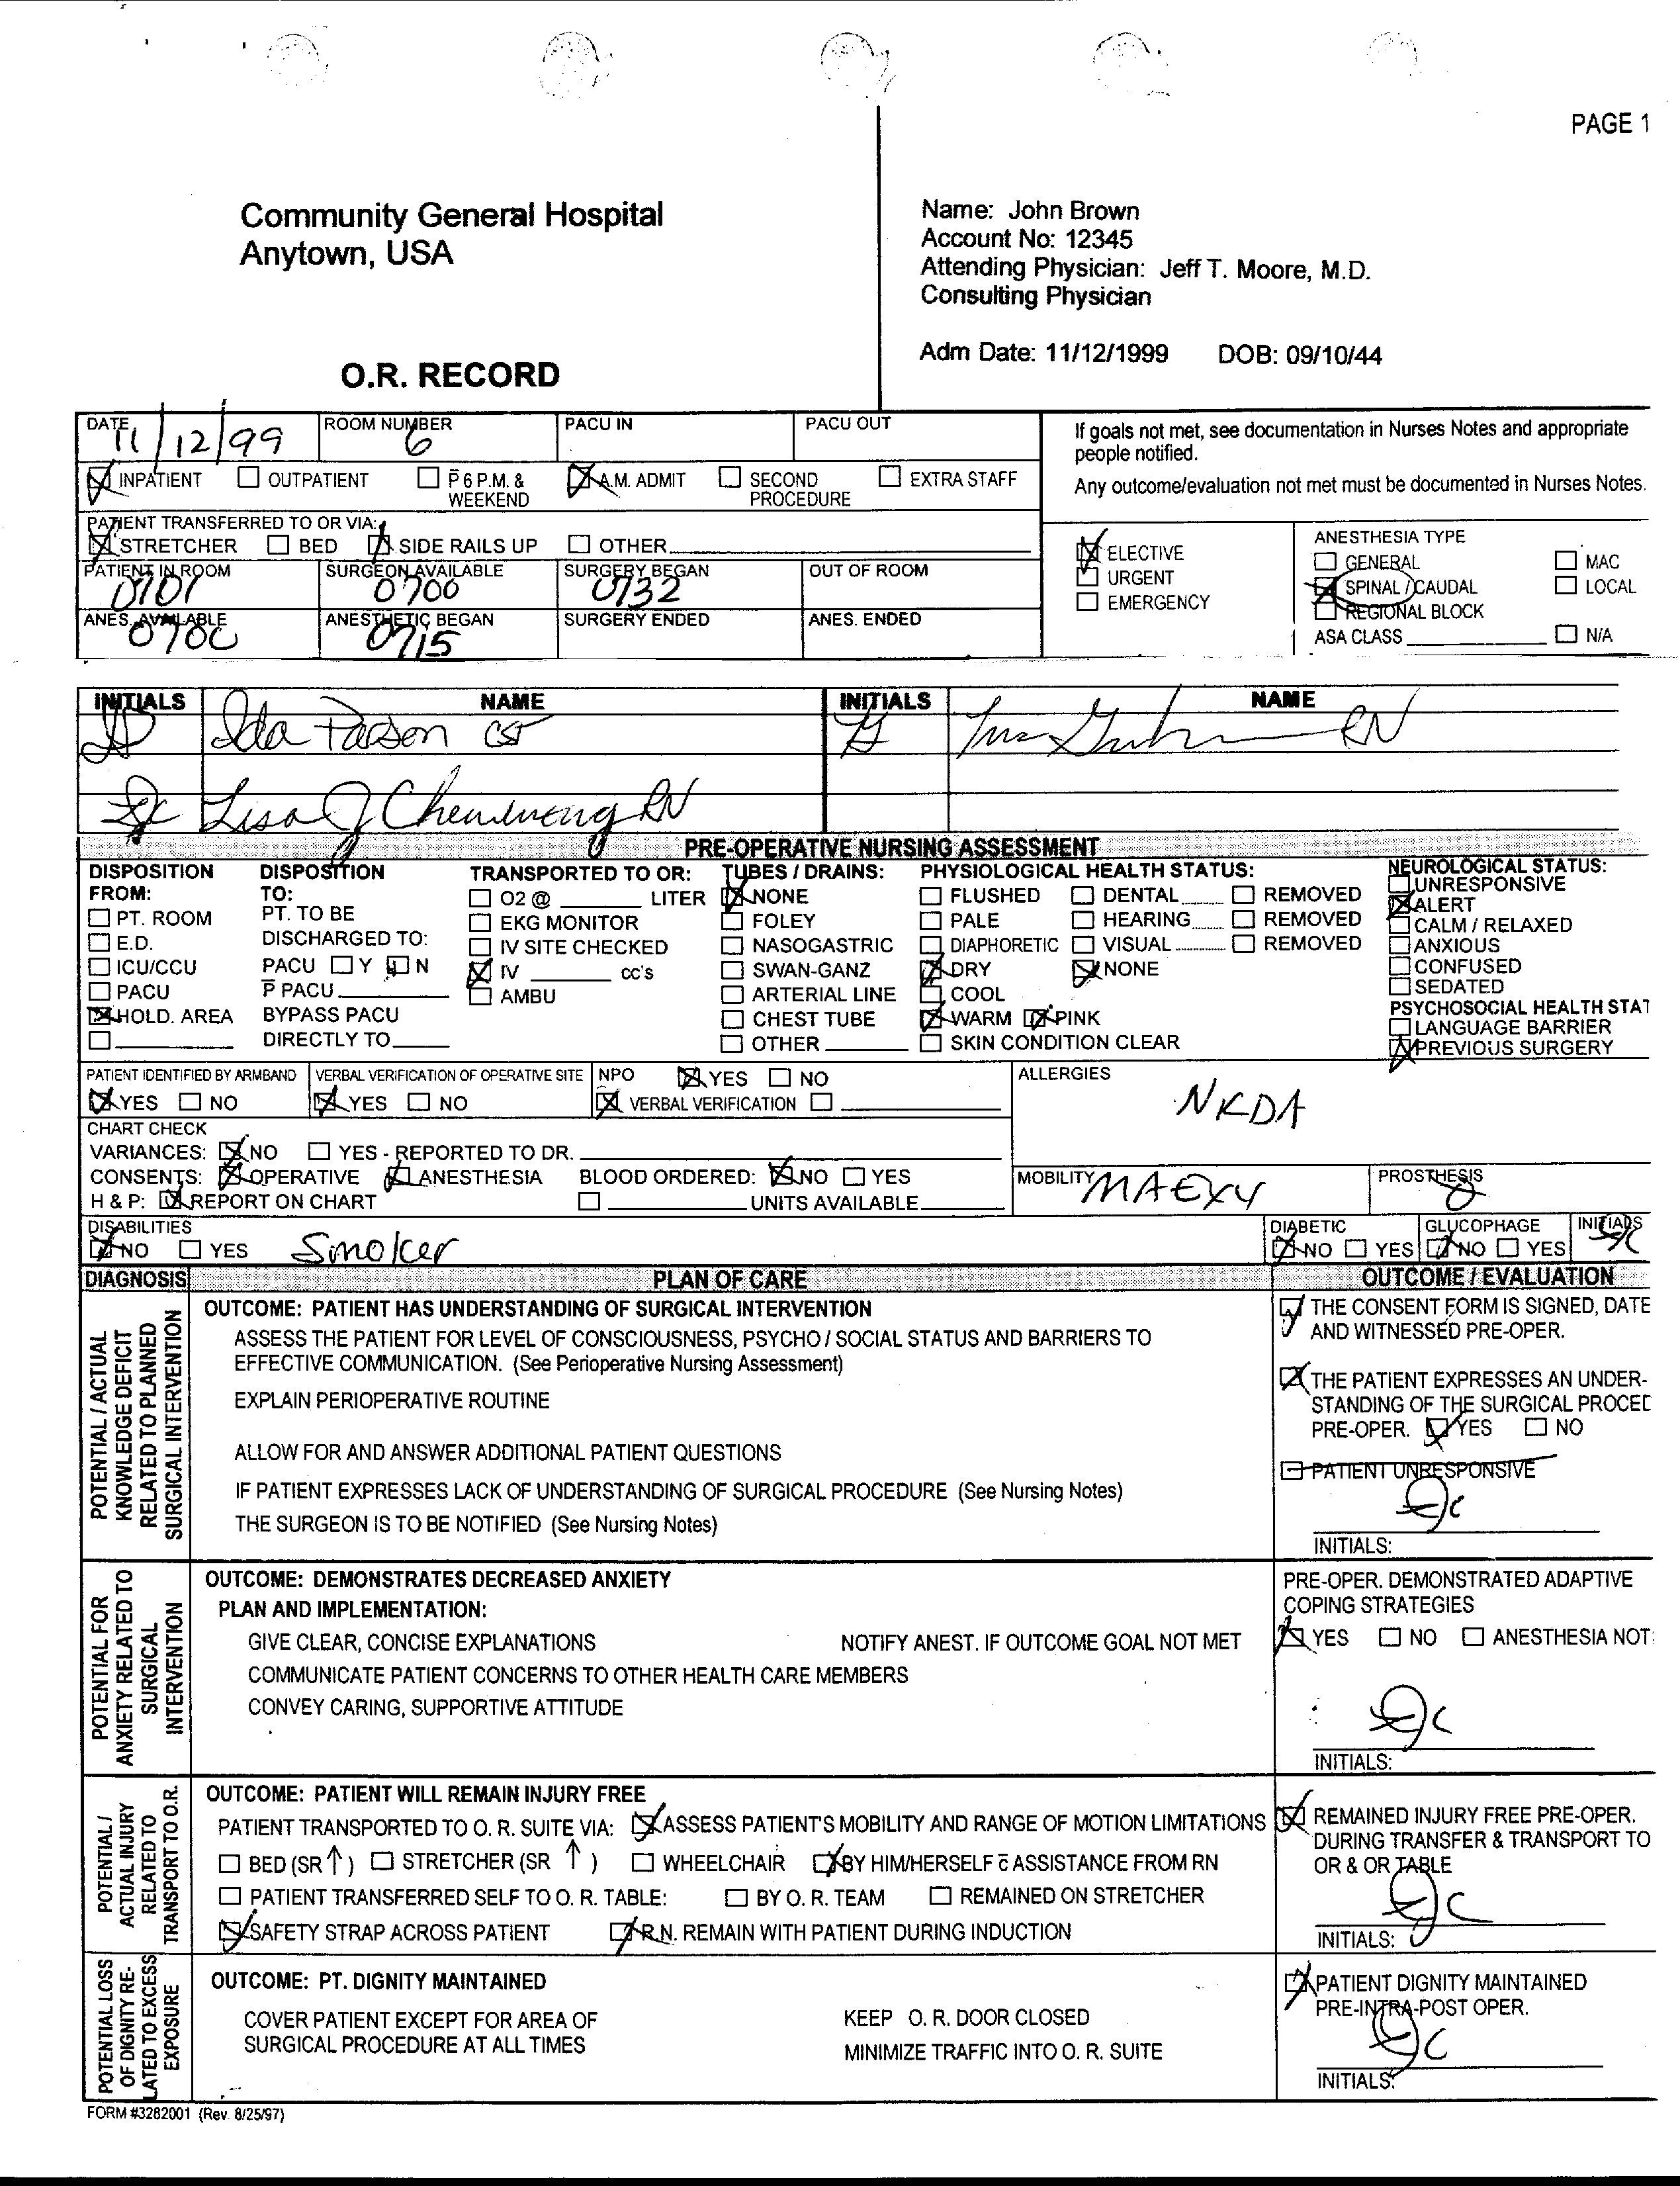 PAGE 1
Community General Hospital
Anytown, USA
O.R. RECORD
Name: John Brown
Account No: 12345
Attending Physician: Jeff T. Moore, M.D.
Consulting Physician
Adm Date: 11/12/1999 DOB: 09/10/44
DATE 11/12/99 ROOM NUMBER 6 PACU IN PACU OUT
If goals not met, see documentation in Nurses Notes and appropriate
people notified.
Any outcome/evaluation not met must be documented in Nurses Notes.
INPATIENT OUTPATIENT P̄ 6 P.M. & WEEKEND A.M. ADMIT SECOND PROCEDURE EXTRA STAFF
PATIENT TRANSFERRED TO OR VIA:
STRETCHER BED SIDE RAILS UP OTHER
PATIENT IN ROOM 0701 SURGEON AVAILABLE 0700 SURGERY BEGAN 0732 OUT OF ROOM
ANES. AVAILABLE 0700 ANESTHETIC BEGAN 0715 SURGERY ENDED ANES. ENDED
ELECTIVE
URGENT
EMERGENCY
ANESTHESIA TYPE
GENERAL MAC
SPINAL / CAUDAL LOCAL
REGIONAL BLOCK
ASA CLASS N/A
INITIALS NAME INITIALS NAME
Ida Parson CST RN
Lisa J RN
PRE-OPERATIVE NURSING ASSESSMENT
DISPOSITION FROM:
PT. ROOM
E.D.
ICU/CCU
PACU
HOLD. AREA
DISPOSITION TO:
PT. TO BE
DISCHARGED TO:
PACU Y N
P̄ PACU
BYPASS PACU
DIRECTLY TO
TRANSPORTED TO OR:
O2 @ LITER
EKG MONITOR
IV SITE CHECKED
IV cc's
AMBU
TUBES / DRAINS:
NONE
FOLEY
NASOGASTRIC
SWAN-GANZ
ARTERIAL LINE
CHEST TUBE
OTHER
PHYSIOLOGICAL HEALTH STATUS:
FLUSHED DENTAL REMOVED
PALE HEARING REMOVED
DIAPHORETIC VISUAL REMOVED
DRY NONE
COOL
WARM PINK
SKIN CONDITION CLEAR
NEUROLOGICAL STATUS:
UNRESPONSIVE
ALERT
CALM / RELAXED
ANXIOUS
CONFUSED
SEDATED
PSYCHOSOCIAL HEALTH STAT
LANGUAGE BARRIER
PREVIOUS SURGERY
PATIENT IDENTIFIED BY ARMBAND VERBAL VERIFICATION OF OPERATIVE SITE NPO YES NO
YES NO YES NO VERBAL VERIFICATION
ALLERGIES
NKDA
CHART CHECK
VARIANCES: NO YES - REPORTED TO DR.
CONSENTS: OPERATIVE ANESTHESIA BLOOD ORDERED: NO YES
H & P: REPORT ON CHART UNITS AVAILABLE
MOBILITY MAEXY PROSTHESIS
DISABILITIES
NO YES Smoker
DIABETIC NO YES
GLUCOPHAGE NO YES
INITIALS
DIAGNOSIS PLAN OF CARE OUTCOME / EVALUATION
POTENTIAL / ACTUAL
KNOWLEDGE DEFICIT
RELATED TO PLANNED
SURGICAL INTERVENTION
OUTCOME: PATIENT HAS UNDERSTANDING OF SURGICAL INTERVENTION
ASSESS THE PATIENT FOR LEVEL OF CONSCIOUSNESS, PSYCHO / SOCIAL STATUS AND BARRIERS TO
EFFECTIVE COMMUNICATION. (See Perioperative Nursing Assessment)
EXPLAIN PERIOPERATIVE ROUTINE
ALLOW FOR AND ANSWER ADDITIONAL PATIENT QUESTIONS
IF PATIENT EXPRESSES LACK OF UNDERSTANDING OF SURGICAL PROCEDURE (See Nursing Notes)
THE SURGEON IS TO BE NOTIFIED (See Nursing Notes)
THE CONSENT FORM IS SIGNED, DATE
AND WITNESSED PRE-OPER.
THE PATIENT EXPRESSES AN UNDER-
STANDING OF THE SURGICAL PROCED
PRE-OPER. YES NO
PATIENT UNRESPONSIVE
INITIALS:
POTENTIAL FOR
ANXIETY RELATED TO
SURGICAL
INTERVENTION
OUTCOME: DEMONSTRATES DECREASED ANXIETY
PLAN AND IMPLEMENTATION:
GIVE CLEAR, CONCISE EXPLANATIONS NOTIFY ANEST. IF OUTCOME GOAL NOT MET
COMMUNICATE PATIENT CONCERNS TO OTHER HEALTH CARE MEMBERS
CONVEY CARING, SUPPORTIVE ATTITUDE
PRE-OPER. DEMONSTRATED ADAPTIVE
COPING STRATEGIES
YES NO ANESTHESIA NOT
INITIALS:
POTENTIAL /
ACTUAL INJURY
RELATED TO
TRANSPORT TO O.R.
OUTCOME: PATIENT WILL REMAIN INJURY FREE
PATIENT TRANSPORTED TO O. R. SUITE VIA: ASSESS PATIENT'S MOBILITY AND RANGE OF MOTION LIMITATIONS
BED (SR ↑) STRETCHER (SR ↑ ) WHEELCHAIR BY HIM/HERSELF c̄ ASSISTANCE FROM RN
PATIENT TRANSFERRED SELF TO O. R. TABLE: BY O. R. TEAM REMAINED ON STRETCHER
SAFETY STRAP ACROSS PATIENT R.N. REMAIN WITH PATIENT DURING INDUCTION
REMAINED INJURY FREE PRE-OPER.
DURING TRANSFER & TRANSPORT TO
OR & OR TABLE
INITIALS:
POTENTIAL LOSS
OF DIGNITY RE-
LATED TO EXCESS
EXPOSURE
OUTCOME: PT. DIGNITY MAINTAINED
COVER PATIENT EXCEPT FOR AREA OF KEEP O. R. DOOR CLOSED
SURGICAL PROCEDURE AT ALL TIMES MINIMIZE TRAFFIC INTO O. R. SUITE
PATIENT DIGNITY MAINTAINED
PRE-INTRA-POST OPER.
INITIALS:
FORM #3282001 (Rev. 8/25/97)